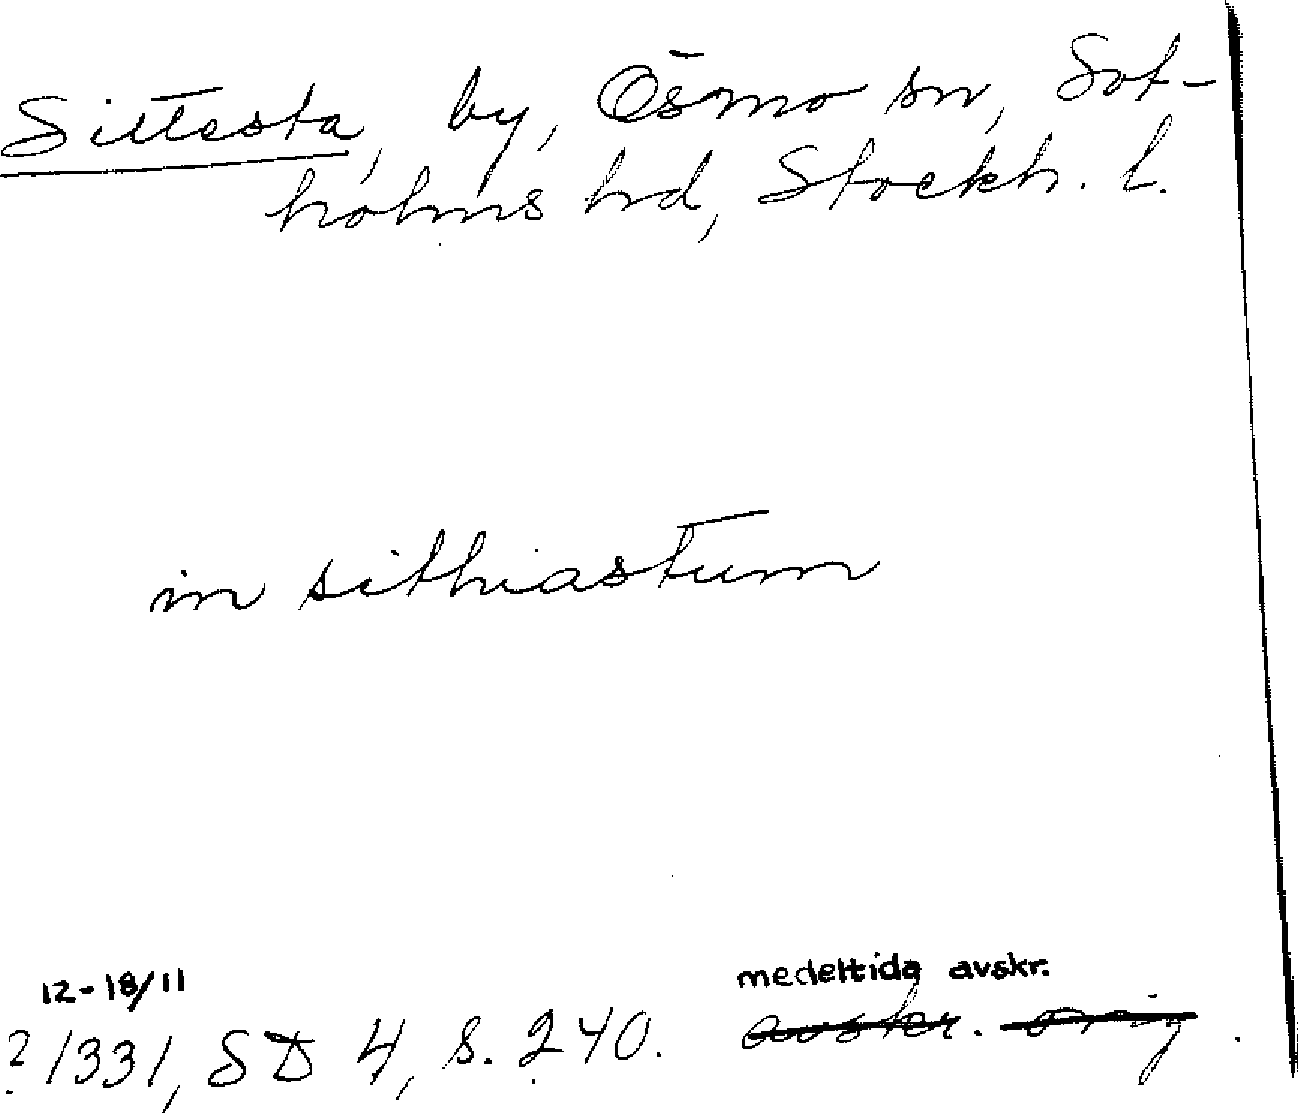 Sittesta, by, Ösmo sn, Sot-
holms hd, Stockh. l.
in sithiastum
12-18/11 medeltida avskr.
? 1331, SD 4, s. 240. avskr. orig.